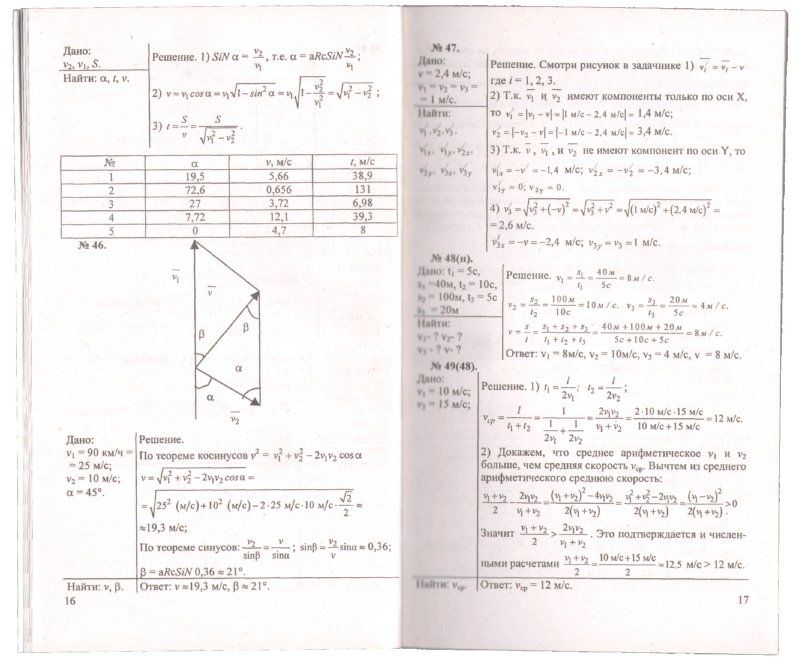 Дано:
v₂, v₁, S.
Найти: α, t, v.
Решение. 1) SiN α = v₂/v₁, т.е. α = aRcSiN v₂/v₁;
2) v = v₁ cos α = v₁√(1 – sin² α) = v₁√(1 – v₂²/v₁²) = √(v₁² – v₂²) ;
3) t = S/v = S/√(v₁² – v₂²).
№ α v, м/с t, м/с
1 19,5 5,66 38,9
2 72,6 0,656 131
3 27 3,72 6,98
4 7,72 12,1 39,3
5 0 4,7 8
№ 46.
v₁
v
β
β
α
α
v₂
Дано:
v₁ = 90 км/ч =
= 25 м/с;
v₂ = 10 м/с;
α = 45°.
Найти: v, β.
Решение.
По теореме косинусов v² = v₁² + v₂² – 2v₁v₂ cos α
v = √(v₁² + v₂² – 2v₁v₂ cos α) =
= √(25² (м/с) + 10² (м/с) – 2·25 м/с·10 м/с·√2/2) ≈
≈19,3 м/с;
По теореме синусов: v₂/sinβ = v/sinα ; sinβ = v₂/v sinα ≈ 0,36;
β = aRcSiN 0,36 ≈ 21°.
Ответ: v ≈19,3 м/с, β ≈ 21°.
16
№ 47.
Дано:
v = 2,4 м/с;
v₁ = v₂ = v₃ =
= 1 м/с.
Найти:
v₁′, v₂′, v₃′,
v₁ₓ′, v₁ᵧ′, v₂ₓ′,
v₂ᵧ′, v₃ₓ′, v₃ᵧ′
Решение. Смотри рисунок в задачнике 1) vᵢ′ = vᵢ – v
где i = 1, 2, 3.
2) Т.к. v₁ и v₂ имеют компоненты только по оси X,
то v₁′ = |v₁ – v| = |1 м/с – 2,4 м/с| = 1,4 м/с;
v₂′ = |–v₂ – v| = |–1 м/с – 2,4 м/с| = 3,4 м/с.
3) Т.к. v , v₁ , и v₂ не имеют компонент по оси Y, то
v₁ₓ′ = –v′ = –1,4 м/с; v₂ₓ′ = –v₂′ = –3,4 м/с;
v₁ᵧ′ = 0; v₂ᵧ = 0.
4) v₃′ = √(v₃² + (–v)²) = √(v₃² + v²) = √((1 м/с)² + (2,4 м/с)²) =
= 2,6 м/с.
v₃ₓ′ = –v = –2,4 м/с; v₃ᵧ = v₃ = 1 м/с.
№ 48(н).
Дано: t₁ = 5с,
s₁ =40м, t₂ = 10с,
s₂ = 100м, t₃ = 5с
s₃ = 20м
Найти:
v₁- ? v₂- ?
v₃ - ? v- ?
Решение. v₁ = s₁/t₁ = 40м/5с = 8м / с.
v₂ = s₂/t₂ = 100м/10с = 10м / с. v₃ = s₃/t₃ = 20м/5с = 4м / с.
v = s/t = (s₁ + s₂ + s₃)/(t₁ + t₂ + t₃) = (40м + 100м + 20м)/(5с + 10с + 5с) = 8м / с.
Ответ: v₁ = 8м/с, v₂ = 10м/с, v₃ = 4 м/с, v = 8 м/с.
№ 49(48).
Дано:
v₁ = 10 м/с;
v₂ = 15 м/с;
Найти: vср.
Решение. 1) t₁ = l/2v₁; t₂ = l/2v₂;
vср = l/(t₁ + t₂) = 1/(1/2v₁ + 1/2v₂) = 2v₁v₂/(v₁ + v₂) = 2·10 м/с·15 м/с/(10 м/с + 15 м/с) = 12 м/с.
2) Докажем, что среднее арифметическое v₁ и v₂
больше, чем средняя скорость vср. Вычтем из среднего
арифметического среднюю скорость:
(v₁ + v₂)/2 – 2v₁v₂/(v₁ + v₂) = ((v₁ + v₂)² – 4v₁v₂)/2(v₁ + v₂) = (v₁² + v₂² – 2v₁v₂)/2(v₁ + v₂) = (v₁ – v₂)²/2(v₁ + v₂) >0
Значит (v₁ + v₂)/2 > 2v₁v₂/(v₁ + v₂). Это подтверждается и числен-
ными расчетами (v₁ + v₂)/2 = (10 м/с + 15 м/с)/2 = 12,5 м/с > 12 м/с.
Ответ: vср = 12 м/с.
17